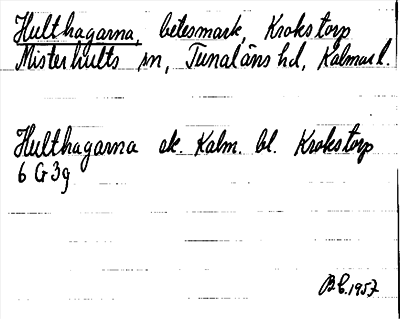 Hulthagarna, betesmark, Krokstorp
Misterhults sn, Tunaläns hd, Kalmar l.
Hulthagarna ek. Kalm. bl. Krokstorp
6 G 3g
1957